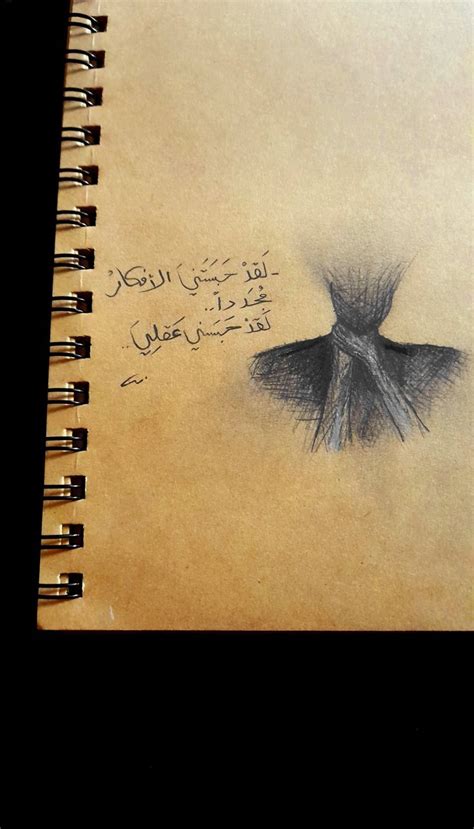 - لَقَدْ حَبَسَتْنِيَ الأفكارُ
مُجَدداً..
لَقَدْ حَبَسَنِي عَقلِي..